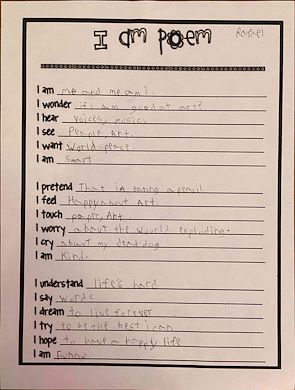 I am poem
Rafael
I am me and me am I.
I wonder if I am good at art?
I hear voices, music.
I see People, Art.
I want World peace
I am Smart
I pretend That im eating a pencil
I feel Happy about Art.
I touch paper, Art.
I worry about the world exploding.
I cry about my dead dog
I am Kind.
I understand life's hard
I say words
I dream to live forever
I try to be the best I can
I hope to have a happy life
I am Funny